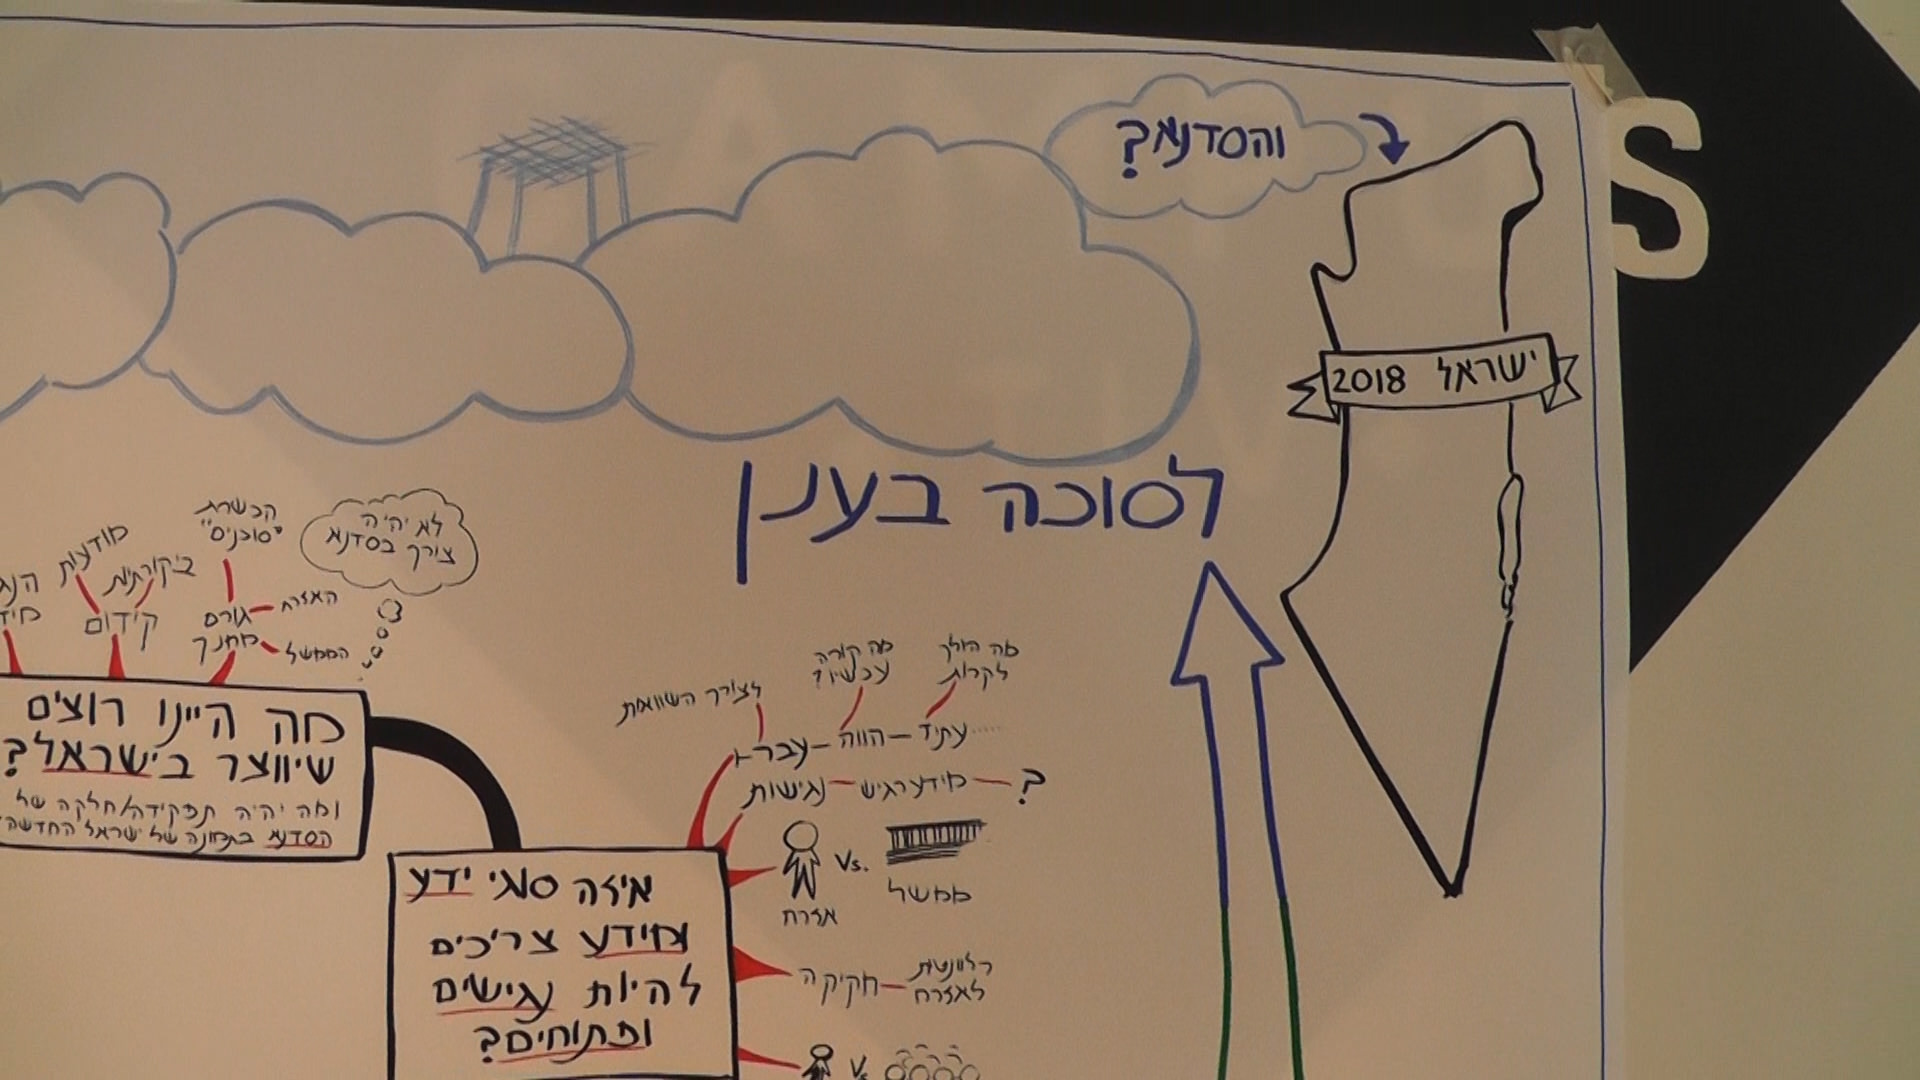 והסדנא?
ישראל 2018
S
לסוכה בענן
לא יהיה
צורך בסדנא
הכשרת
"סוכנים"
מודעות
ביקורתיות
קידום
גורם
מחנך
האזרח
הממשל
מה היינו רוצים
שיווצר בישראל?
ומה יהיה תפקידה/חלקה של
הסדנא בתמונה של ישראל החדשה?
מה הולך
לקרות
מה קורה
עכשיו?
לצורך השוואות
עבר – הווה – עתיד
נגישות – מידע רגיש – ?
Vs.
אזרח
ממשל
איזה סוגי ידע
ומידע צריכים
להיות נגישים
ופתוחים?
חקיקה – רלוונטית
לאזרח
Vs